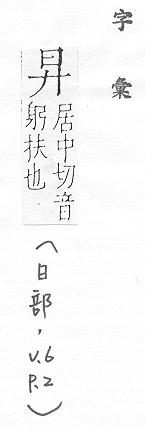 字彙
居中切音
躬扶也
(日部,
V.6
P.2)